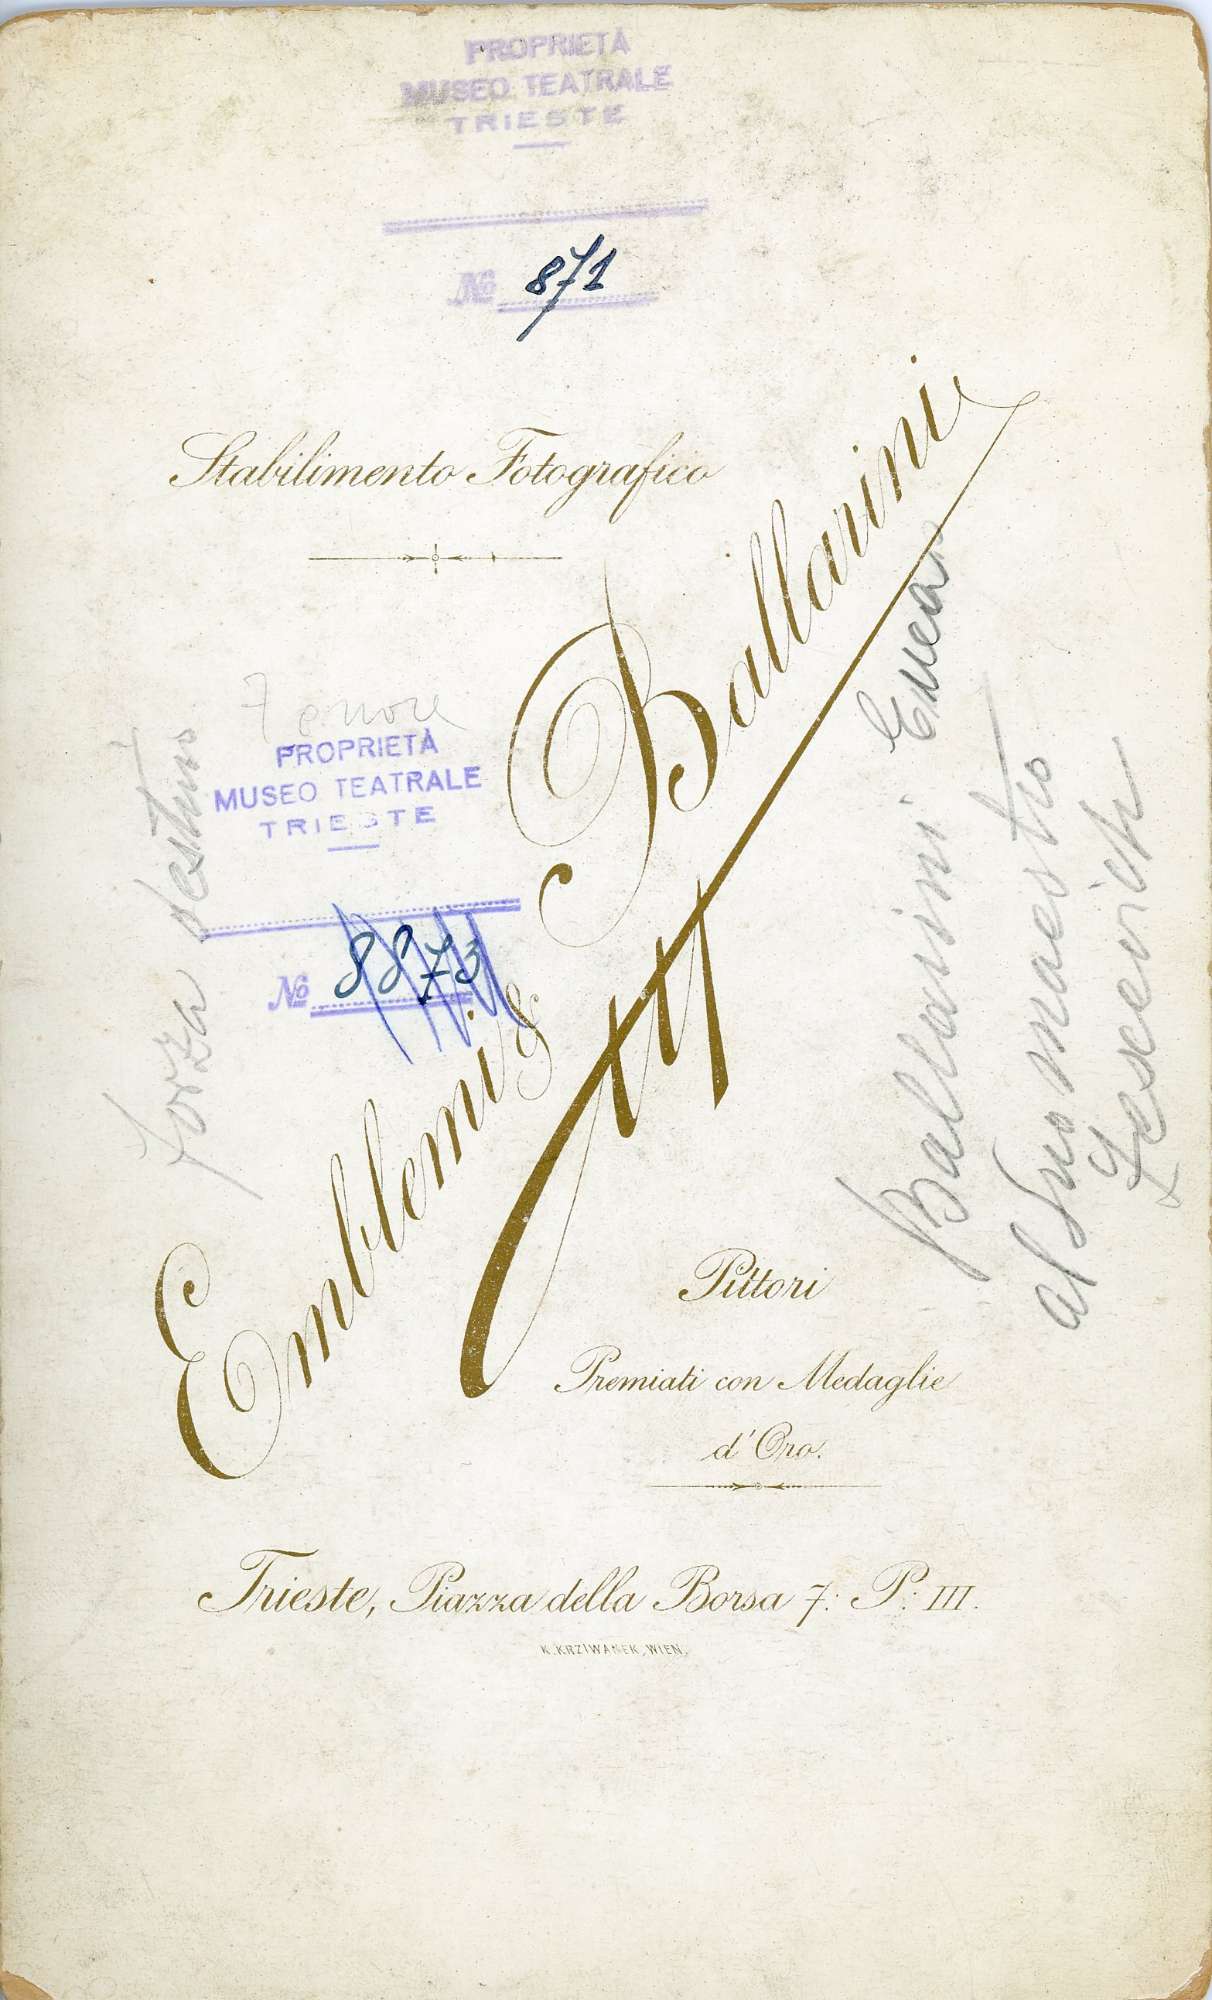 PROPRIETÀ
MUSEO TEATRALE
TRIESTE
№ 871
Stabilimento Fotografico
Tenore
PROPRIETÀ
MUSEO TEATRALE
TRIESTE
№ 8873
forza destino
Emblemi & Ballarini
Ballarini
al suo maestro
Pittori
Premiati con Medaglie
d'Oro.
Trieste, Piazza della Borsa 7: P: III.
K. KRZIWANEK, WIEN.